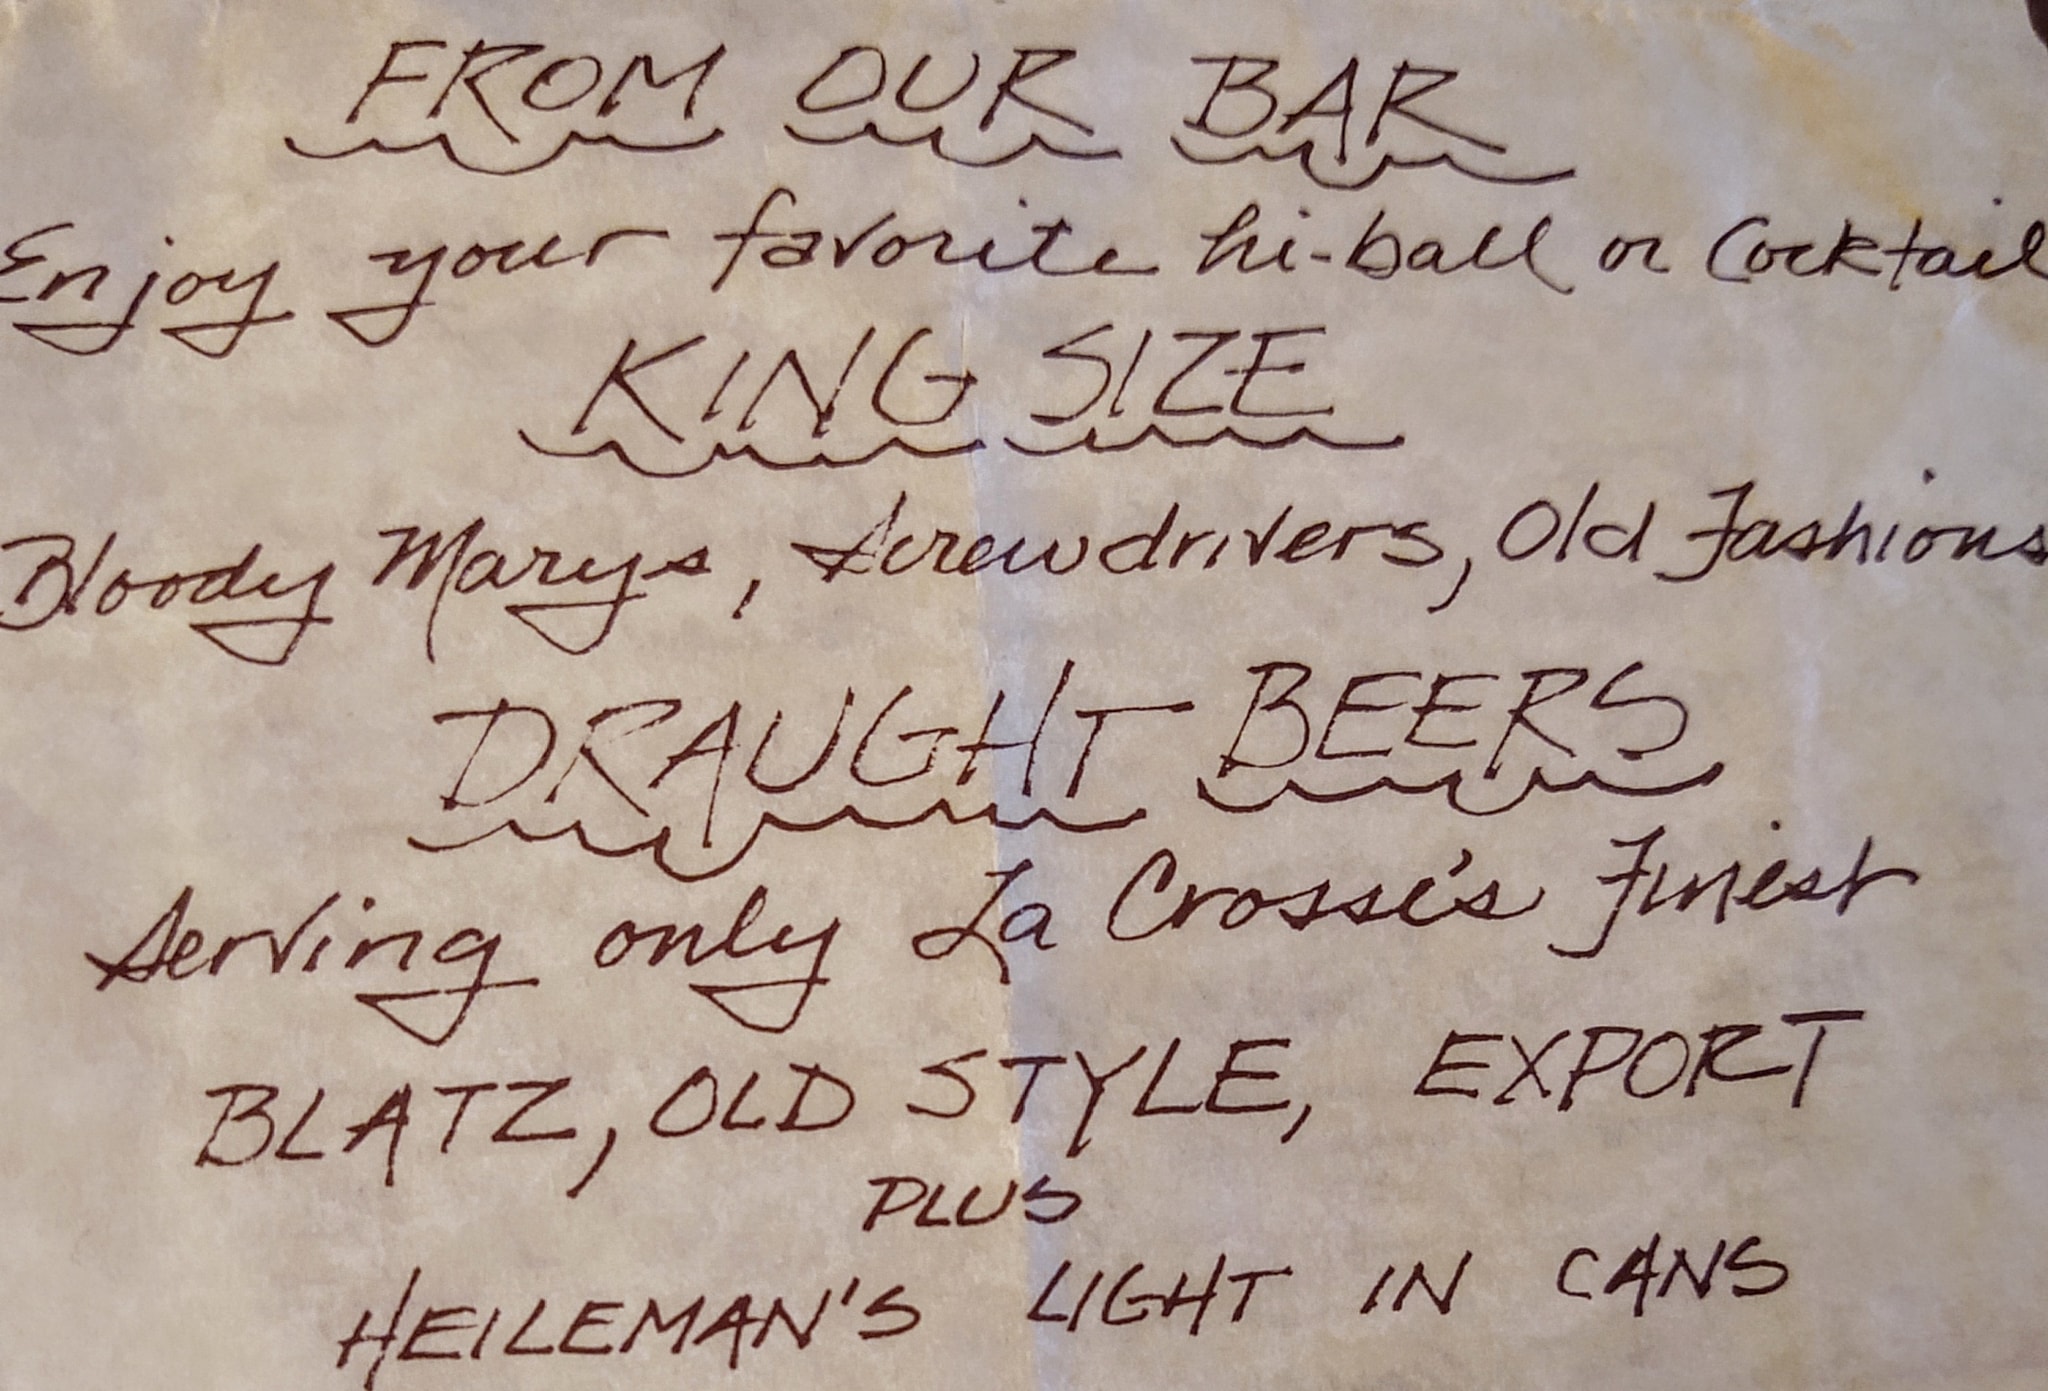 FROM OUR BAR
Enjoy your favorite hi-ball or Cocktail
KING SIZE
Bloody Marys, Screwdrivers, Old Fashions
DRAUGHT BEERS
Serving only La Crosse's Finest
BLATZ, OLD STYLE, EXPORT
PLUS
HEILEMAN'S LIGHT IN CANS